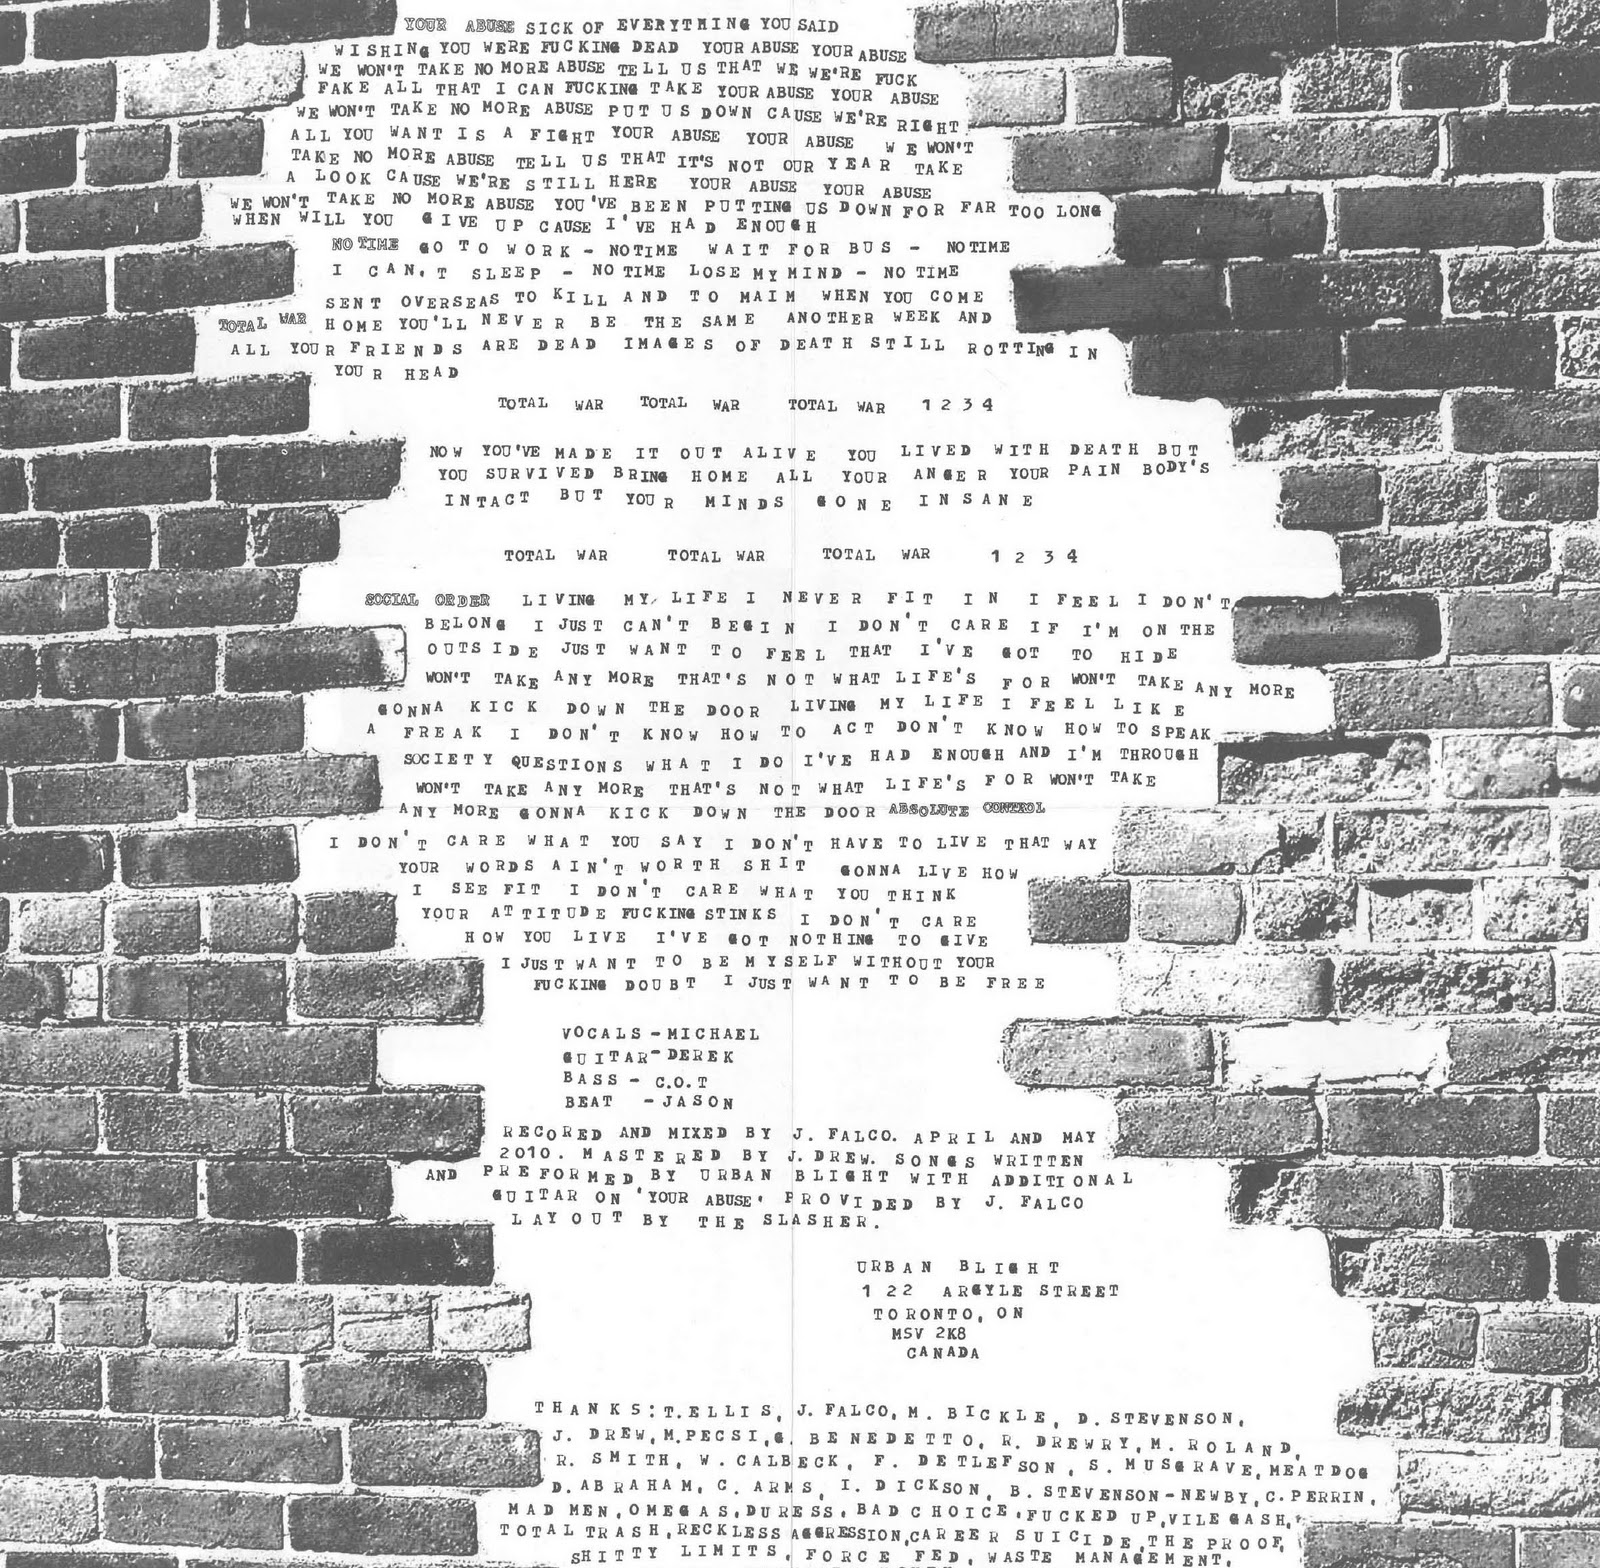 YOUR ABUSE SICK OF EVERYTHING YOU SAID
WISHING YOU WERE FUCKING DEAD YOUR ABUSE YOUR ABUSE
WE WON'T TAKE NO MORE ABUSE TELL US THAT WE WE'RE FUCK
FAKE ALL THAT I CAN FUCKING TAKE YOUR ABUSE YOUR ABUSE
WE WON'T TAKE NO MORE ABUSE PUT US DOWN CAUSE WE'RE RIGHT
ALL YOU WANT IS A FIGHT YOUR ABUSE YOUR ABUSE WE WON'T
TAKE NO MORE ABUSE TELL US THAT IT'S NOT OUR YEAR TAKE
A LOOK CAUSE WE'RE STILL HERE YOUR ABUSE YOUR ABUSE
WE WON'T TAKE NO MORE ABUSE YOU'VE BEEN PUTTING US DOWN FOR FAR TOO LONG
WHEN WILL YOU GIVE UP CAUSE I'VE HAD ENOUGH
NO TIME GO TO WORK - NO TIME WAIT FOR BUS - NO TIME
I CAN,T SLEEP - NO TIME LOSE MY MIND - NO TIME
SENT OVERSEAS TO KILL AND TO MAIM WHEN YOU COME
TOTAL WAR HOME YOU'LL NEVER BE THE SAME ANOTHER WEEK AND
ALL YOUR FRIENDS ARE DEAD IMAGES OF DEATH STILL ROTTING IN
YOUR HEAD
TOTAL WAR TOTAL WAR TOTAL WAR 1 2 3 4
NOW YOU'VE MADE IT OUT ALIVE YOU LIVED WITH DEATH BUT
YOU SURVIVED BRING HOME ALL YOUR ANGER YOUR PAIN BODY'S
INTACT BUT YOUR MINDS GONE INSANE
TOTAL WAR TOTAL WAR TOTAL WAR 1 2 3 4
SOCIAL ORDER LIVING MY LIFE I NEVER FIT IN I FEEL I DON'T
BELONG I JUST CAN'T BEGIN I DON'T CARE IF I'M ON THE
OUTSIDE JUST WANT TO FEEL THAT I'VE GOT TO HIDE
WON'T TAKE ANY MORE THAT'S NOT WHAT LIFE'S FOR WON'T TAKE ANY MORE
GONNA KICK DOWN THE DOOR LIVING MY LIFE I FEEL LIKE
A FREAK I DON'T KNOW HOW TO ACT DON'T KNOW HOW TO SPEAK
SOCIETY QUESTIONS WHAT I DO I'VE HAD ENOUGH AND I'M THROUGH
WON'T TAKE ANY MORE THAT'S NOT WHAT LIFE'S FOR WON'T TAKE
ANY MORE GONNA KICK DOWN THE DOOR ABSOLUTE CONTROL
I DON'T CARE WHAT YOU SAY I DON'T HAVE TO LIVE THAT WAY
YOUR WORDS AIN'T WORTH SHIT GONNA LIVE HOW
I SEE FIT I DON'T CARE WHAT YOU THINK
YOUR ATTITUDE FUCKING STINKS I DON'T CARE
HOW YOU LIVE I'VE GOT NOTHING TO GIVE
I JUST WANT TO BE MYSELF WITHOUT YOUR
FUCKING DOUBT I JUST WANT TO BE FREE
VOCALS - MICHAEL
GUITAR - DEREK
BASS - C.O.T
BEAT - JASON
RECORED AND MIXED BY J. FALCO. APRIL AND MAY
2010. MASTERED BY J. DREW. SONGS WRITTEN
AND PREFORMED BY URBAN BLIGHT WITH ADDITIONAL
GUITAR ON 'YOUR ABUSE' PROVIDED BY J. FALCO
LAYOUT BY THE SLASHER.
URBAN BLIGHT
122 ARGYLE STREET
TORONTO, ON
MSV 2K8
CANADA
THANKS: T. ELLIS, J. FALCO, M. BICKLE, D. STEVENSON,
J. DREW, M. PECSI, G. BENEDETTO, R. DREWRY, M. ROLAND,
R. SMITH, W. CALBECK, F. DETLEFSON, S. MUSGRAVE, MEATDOG
D. ABRAHAM, C. ARMS, I. DICKSON, B. STEVENSON-NEWBY, C. PERRIN,
MAD MEN, OMEGAS, DURESS, BAD CHOICE, FUCKED UP, VILE GASH,
TOTAL TRASH, RECKLESS AGGRESSION, CAREER SUICIDE, THE PROOF,
SHITTY LIMITS, FORCE FED, WASTE MANAGEMENT,